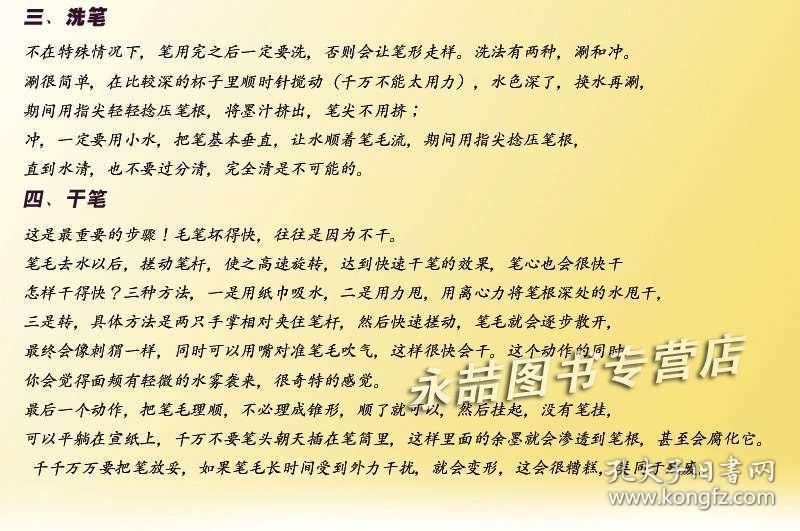 三、洗笔
不在特殊情况下，笔用完之后一定要洗，否则会让笔形走样。洗法有两种，涮和冲。
涮很简单，在比较深的杯子里顺时针搅动（千万不能太用力），水色深了，换水再涮，
期间用指尖轻轻捻压笔根，将墨汁挤出，笔尖不用挤；
冲，一定要用小水，把笔基本垂直，让水顺着笔毛流，期间用指尖捻压笔根，
直到水清，也不要过分清，完全清是不可能的。
四、干笔
这是最重要的步骤！毛笔坏得快，往往是因为不干。
笔毛去水以后，搓动笔杆，使之高速旋转，达到快速干笔的效果，笔心也会很快干
怎样干得快？三种方法，一是用纸巾吸水，二是用力甩，用离心力将笔根深处的水甩干，
三是转，具体方法是两只手掌相对夹住笔杆，然后快速搓动，笔毛就会逐步散开，
最终会像刺猬一样，同时可以用嘴对准笔毛吹气，这样很快会干。这个动作的同时
你会觉得面颊有轻微的水雾袭来，很奇特的感觉。
永喆图书专营店
最后一个动作，把笔毛理顺，不必理成锥形，顺了就可以，然后挂起，没有笔挂，
可以平躺在宣纸上，千万不要笔头朝天插在笔筒里，这样里面的余墨就会渗透到笔根，甚至会腐化它。
千千万万要把笔放妥，如果笔毛长时间受到外力干扰，就会变形，这会很糟糕，类同于残废。
孔夫子旧书网
www.kongfz.com